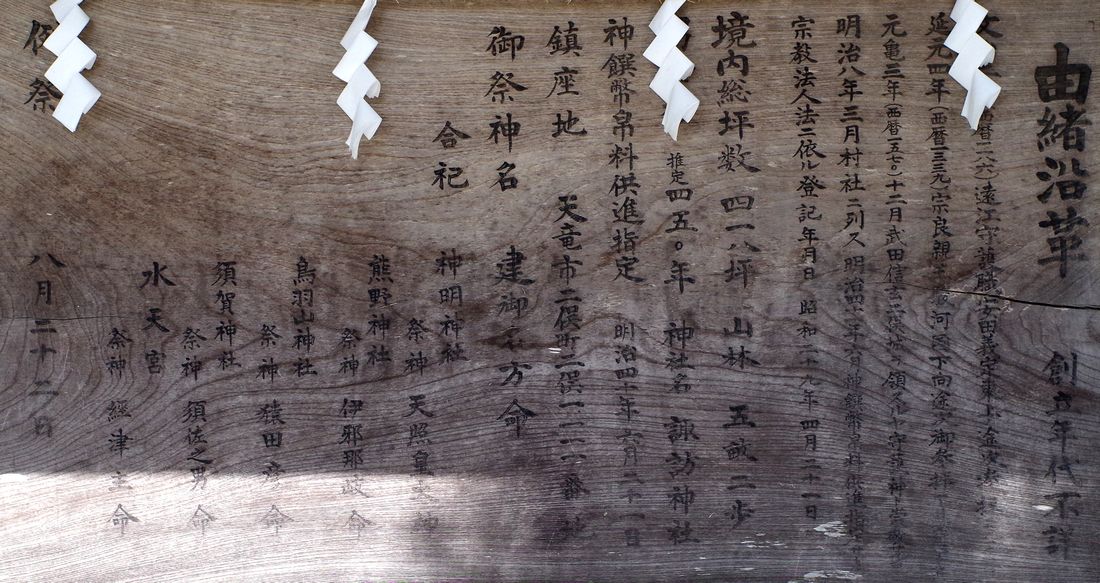 由緒沿革 創立年代不詳
西暦一一八六)遠江守護職安田義定東上金
延元四年(西暦一三三九)宗良親王駿河国下向途 御参拝
元亀三年(西暦一五七〇)十二月武田信玄二俣城 領スルヤ守護神
明治八年三月村社ニ列ス 明治四十年六月神饌幣帛料供進指
宗教法人法ニ依ル登記年月日 昭和二十九年四月二十一日
境内総坪数 四一八坪 山林 五畝二歩
推定四五〇年 神社名 諏訪神社
神饌幣帛料供進指定 明治四十年六月二十一日
鎮座地 天竜市二俣町二俣一一一六番地
御祭神名 建御名方命
合祀 神明神社 祭神 天照皇大神
熊野神社 祭神 伊邪那岐命
鳥羽山神社 祭神 猿田彦命
須賀神社 祭神 須佐之男命
水天宮 祭神 經津主命
祭 八月二十二日